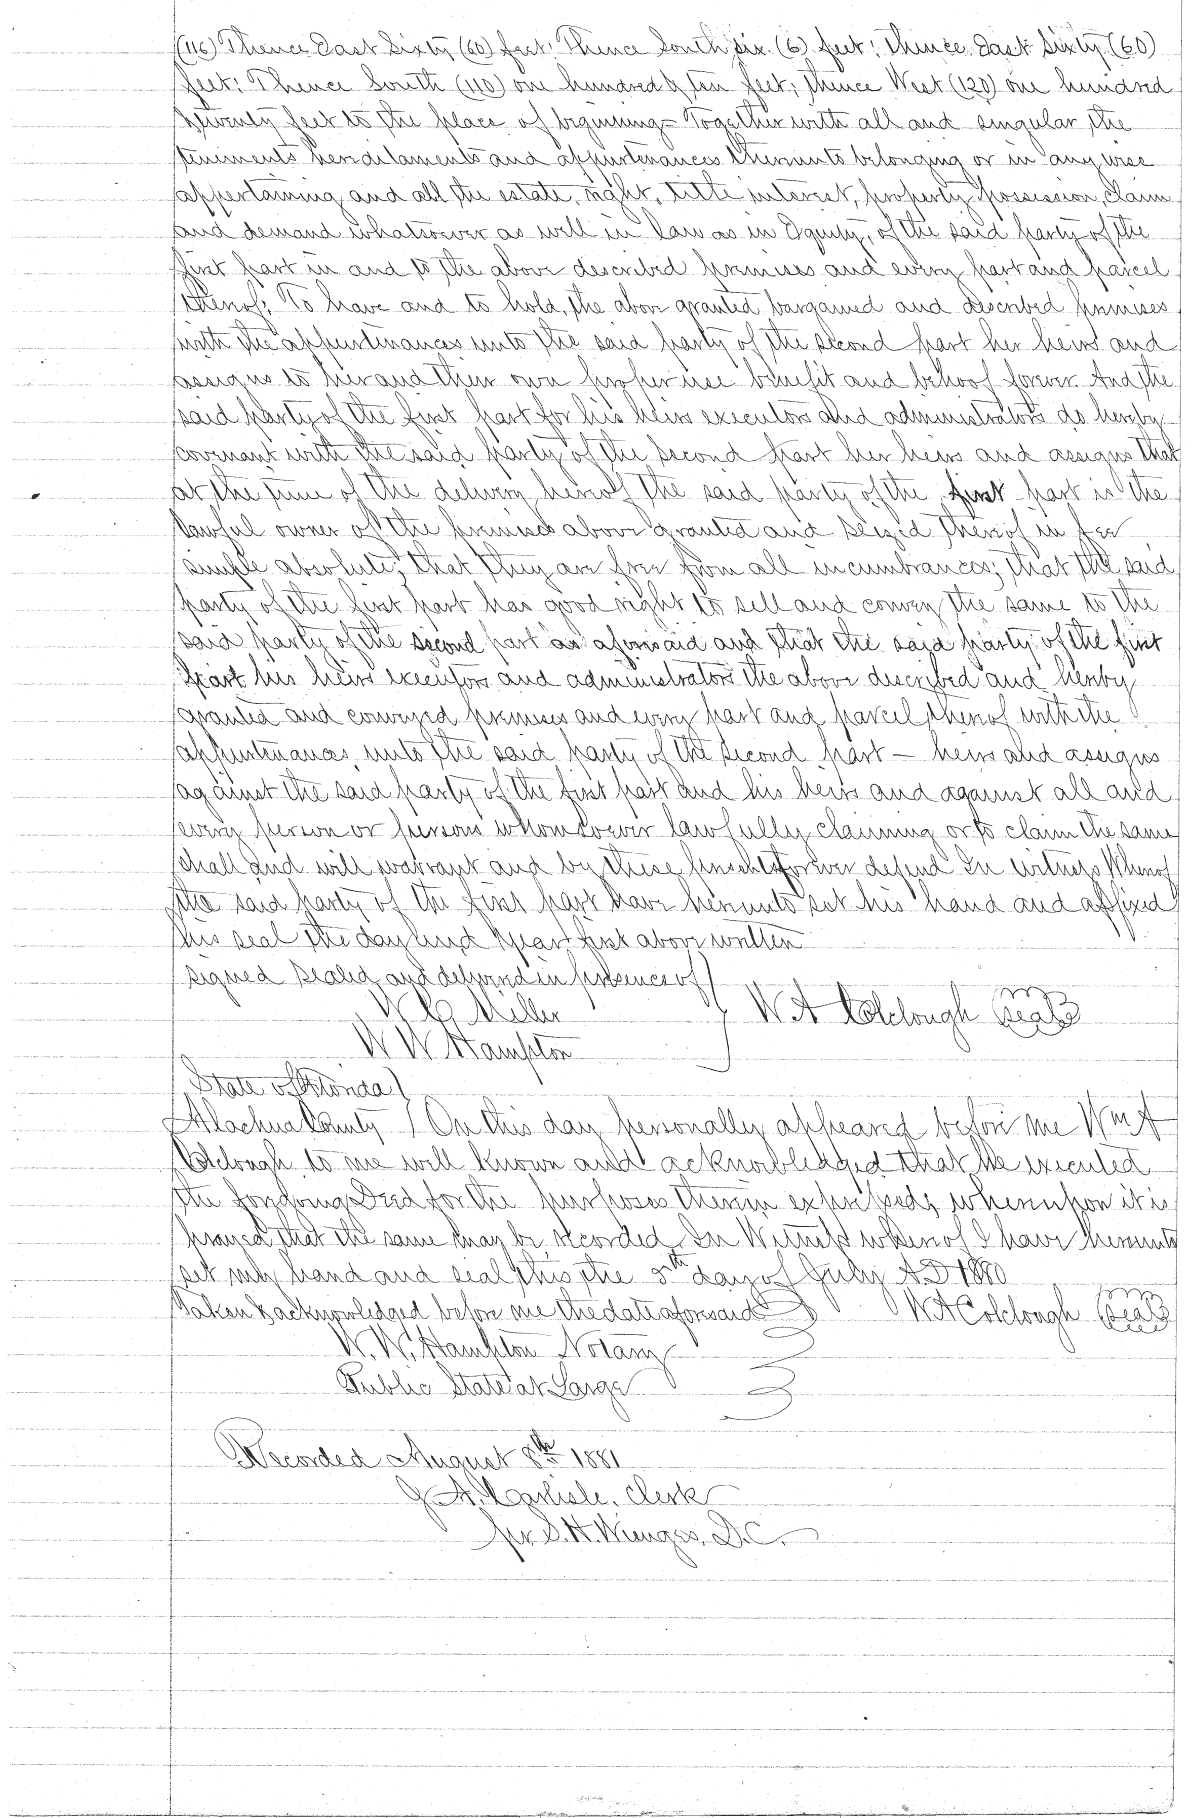 (116) Thence East Sixty (60) feet; Thence South six (6) feet; thence East Sixty (60)
feet; Thence South (110) one hundred & ten feet; thence West (120) one hundred
& twenty feet to the place of beginning = Together with all and singular the
teniments hereditaments and appurtenances thereunto belonging or in any wise
appertaining and all the estate, right, title interest, property possession, claim
and demand whatsoever as well in law as in Equity, of the said party of the
first part in and to the above described premises and every part and parcel
thereof; To have and to hold, the above granted bargained and described premises
with the appurtenances unto the said party of the second part her heirs and
assigns to her and their own proper use benefit and behoof forever. And the
said party of the first part for his heirs executors and administrators do hereby
covenant with the said party of the second part her heirs and assigns that
at the time of the delivery hereof the said party of the first part is the
lawful owner of the premises above granted and seized thereof in fee
simple absolute; that they are free from all incumbrances; that the said
party of the first part has good right to sell and convey the same to the
said party of the second part as aforesaid and that the said party of the first
part his heirs executors and administrators the above described and hereby
granted and conveyed premises and every part and parcel thereof with the
appurtenances unto the said party of the second part — heirs and assigns
against the said party of the first part and his heirs and against all and
every person or persons whomsoever lawfully claiming or to claim the same
shall and will warrant and by these presents forever defend In witness Whereof
the said party of the first part have hereunto set his hand and affixed
his seal the day and year first above written
signed sealed and delivered in presence of
W C Miller W A Colclough Seal
W W Hampton
State of Florida
Alachua County On this day personally appeared before me Wm A
Colclough to me well known and acknowledged that he executed
the foregoing Deed for the purposes therein expressed, whereupon it is
prayed, that the same may be recorded. In Witness whereof I have hereunto
set my hand and seal this, the 5th day of July A.D 1880
Taken & acknowledged before me the date aforesaid W A Colclough Seal
W. W. Hampton Notary
Public State at Large
Recorded August 8th 1881
J. A. Carlisle, Clerk
per S. H. Wienges, D.C.